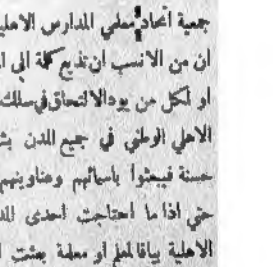 جمعية اتحاد معلمي المدارس الاهلية
ان من الانسب ان تذيع كلمة الى ا
او لكل من يود الالتحاق في سلك
الاهلي الوطني في جميع المدن بش
حسنة فيبعثوا باسمائهم وعناوينهم
حتى اذا ما احتاجت احدى المد
الاهلية
او معلمة بعثت ا